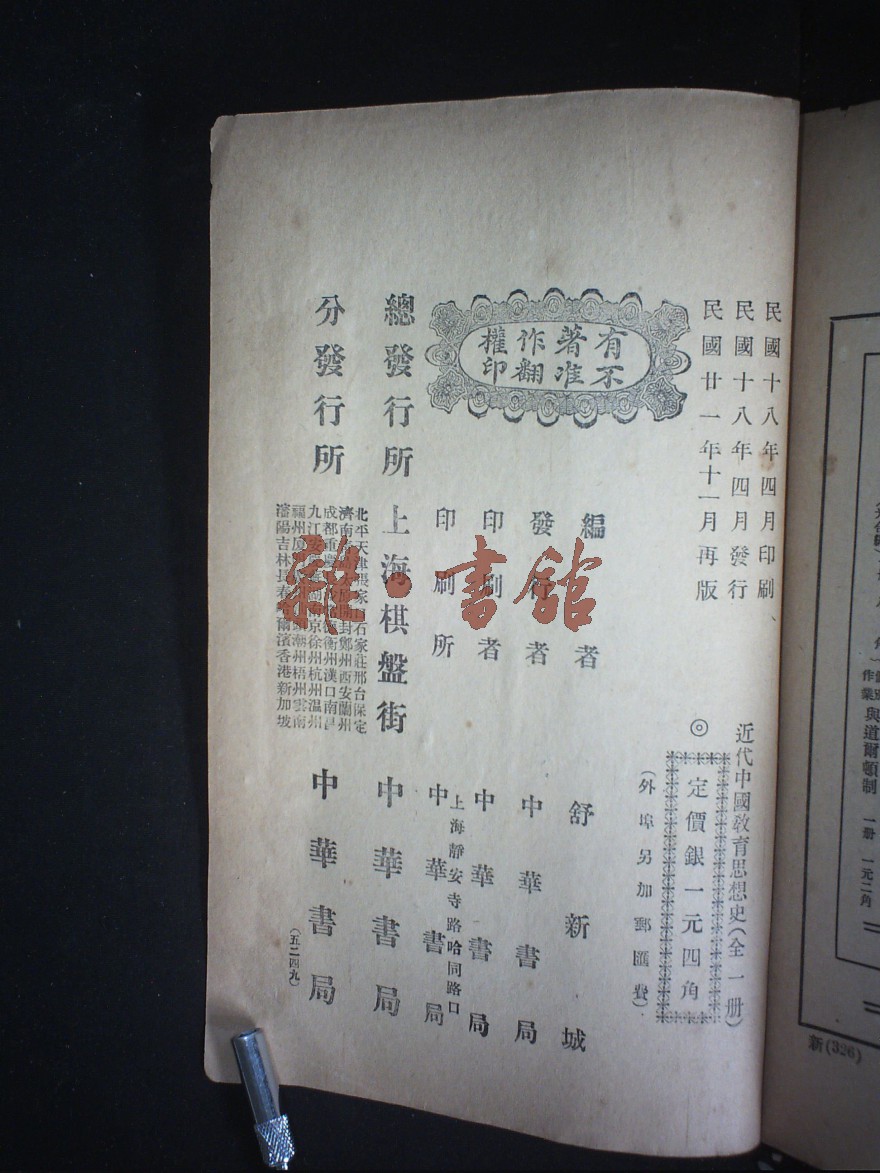 民國十八年四月印刷
民國十八年四月發行
民國廿一年十一月再版
近代中國敎育思想史(全一册)
◎定價銀一元四角
(外埠另加郵匯費)
有著作權
不准翻印
編者 舒新城
發行者 中華書局
印刷者 中華書局
上海靜安寺路哈同路口
印刷所 中華書局
總發行所 上海棋盤街 中華書局
分發行所
北平天津張家口石家莊邢台保定
濟南 開封鄭州西安蘭州
成都重慶 衡州漢口南昌
九江安 南京徐州杭州温州
福州厦 潮州梧州雲南
瀋陽吉林長春哈爾濱香港新加坡
中華書局
(五二四九)
雜·書館
作業 與道爾頓制 一册 一元二角
新(326)